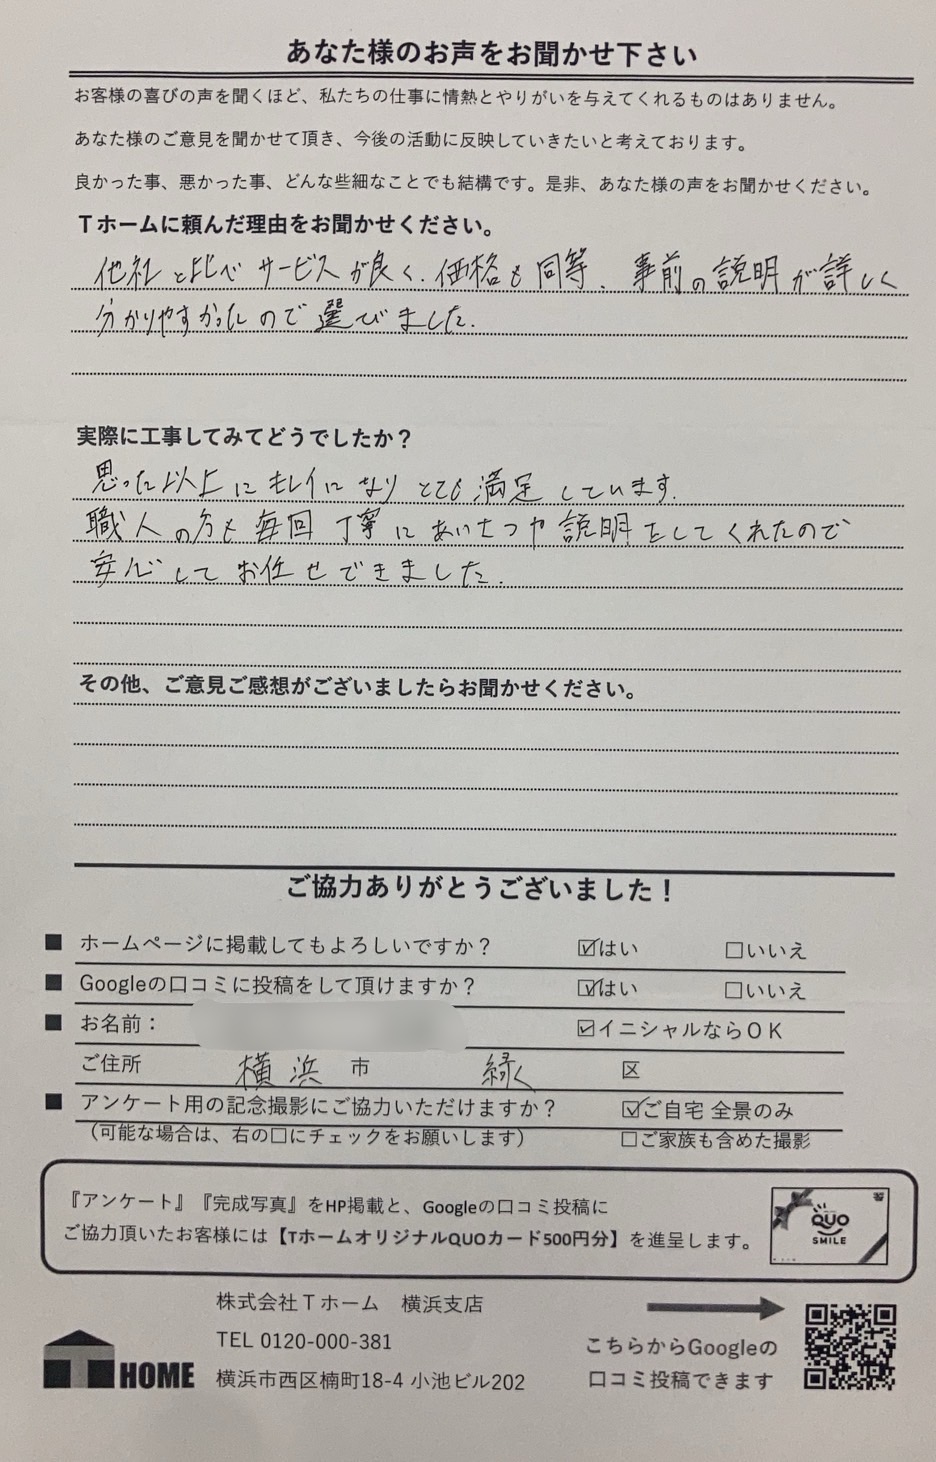 あなた様のお声をお聞かせ下さい
お客様の喜びの声を聞くほど、私たちの仕事に情熱とやりがいを与えてくれるものはありません。
あなた様のご意見を聞かせて頂き、今後の活動に反映していきたいと考えております。
良かった事、悪かった事、どんな些細なことでも結構です。是非、あなた様の声をお聞かせください。
Tホームに頼んだ理由をお聞かせください。
他社と比べサービスが良く、価格も同等、事前の説明が詳しく
分かりやすかったので選びました。
実際に工事してみてどうでしたか？
思った以上にキレイになりとても満足しています。
職人の方も毎回丁寧にあいさつや説明をしてくれたので
安心してお任せできました。
その他、ご意見ご感想がございましたらお聞かせください。
ご協力ありがとうございました！
■ ホームページに掲載してもよろしいですか？ ☑はい □いいえ
■ Googleの口コミに投稿をして頂けますか？ ☑はい □いいえ
■ お名前： ☑イニシャルならＯＫ
ご住所 横浜 市 緑 区
■ アンケート用の記念撮影にご協力いただけますか？ ☑ご自宅 全景のみ
（可能な場合は、右の□にチェックをお願いします） □ご家族も含めた撮影
『アンケート』『完成写真』をHP掲載と、Googleの口コミ投稿に
ご協力頂いたお客様には【TホームオリジナルQUOカード500円分】を進呈します。
QUO
SMILE
株式会社Ｔホーム 横浜支店
TEL 0120-000-381
横浜市西区楠町18-4 小池ビル202
T HOME
こちらからGoogleの
口コミ投稿できます